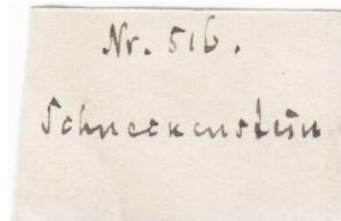 Nr. 516.
Schneckenstein